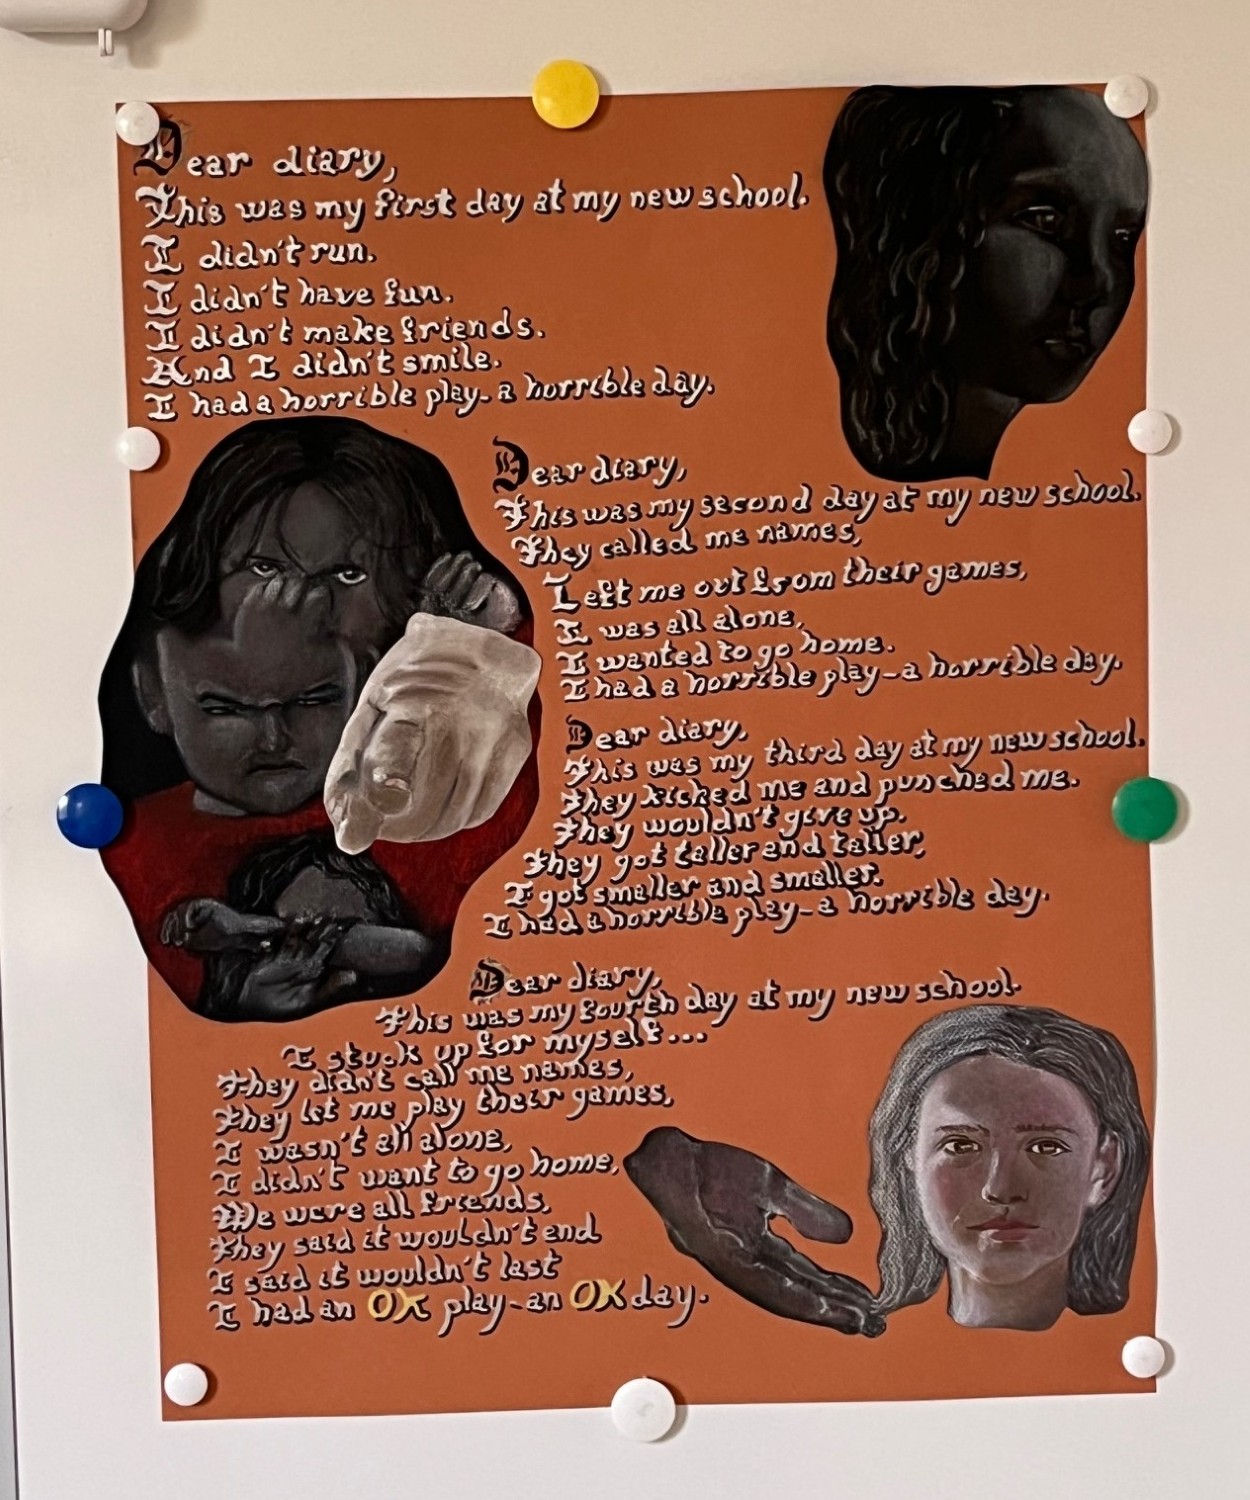 Dear diary,
This was my first day at my new school.
I didn't run.
I didn't have fun.
I didn't make friends.
And I didn't smile.
I had a horrible play-a horrible day.
Dear diary,
This was my second day at my new school.
They called me names,
Left me out from their games,
I was all alone,
I wanted to go home.
I had a horrible play-a horrible day.
Dear diary,
This was my third day at my new school.
They kicked me and punched me.
They wouldn't give up.
They got taller and taller,
I got smaller and smaller.
I had a horrible play-a horrible day.
Dear diary,
This was my fourth day at my new school.
I stuck up for myself...
They didn't call me names,
They let me play their games,
I wasn't all alone,
I didn't want to go home,
We were all friends,
They said it wouldn't end
I said it wouldn't last
I had an OK play-an OK day.